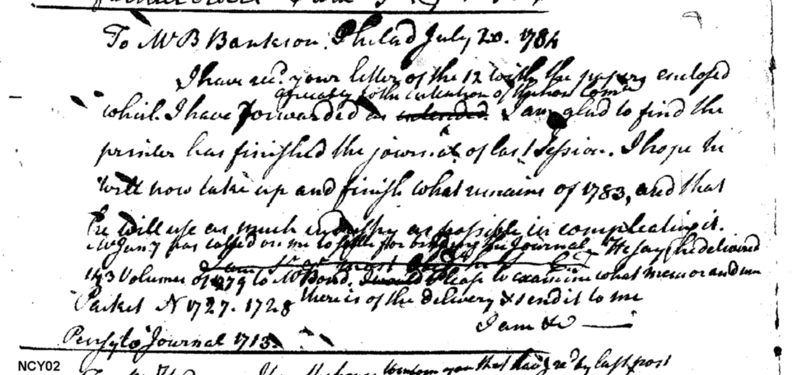 To Mr B Bankson. Philad July 20. 1784
I have recd. your letter of the 12 with the papers enclosed
agreeably to the intention of the hon Comee
which I have forwarded as intended. I am glad to find the
printer has finished the journal of last Session. I hope he
will now take up and finish what remains of 1783, and that
he will use as much industry as possible in compleating it.
has called on me to settle for binding the Journal. He says he delivered
143 Volumes of 1779 to Mr Bond. I would please to examine what memorandum
there is of the delivery & send it to me
Packet N 1727. 1728
I am &c
Journal 1713.
NCY02
by last post